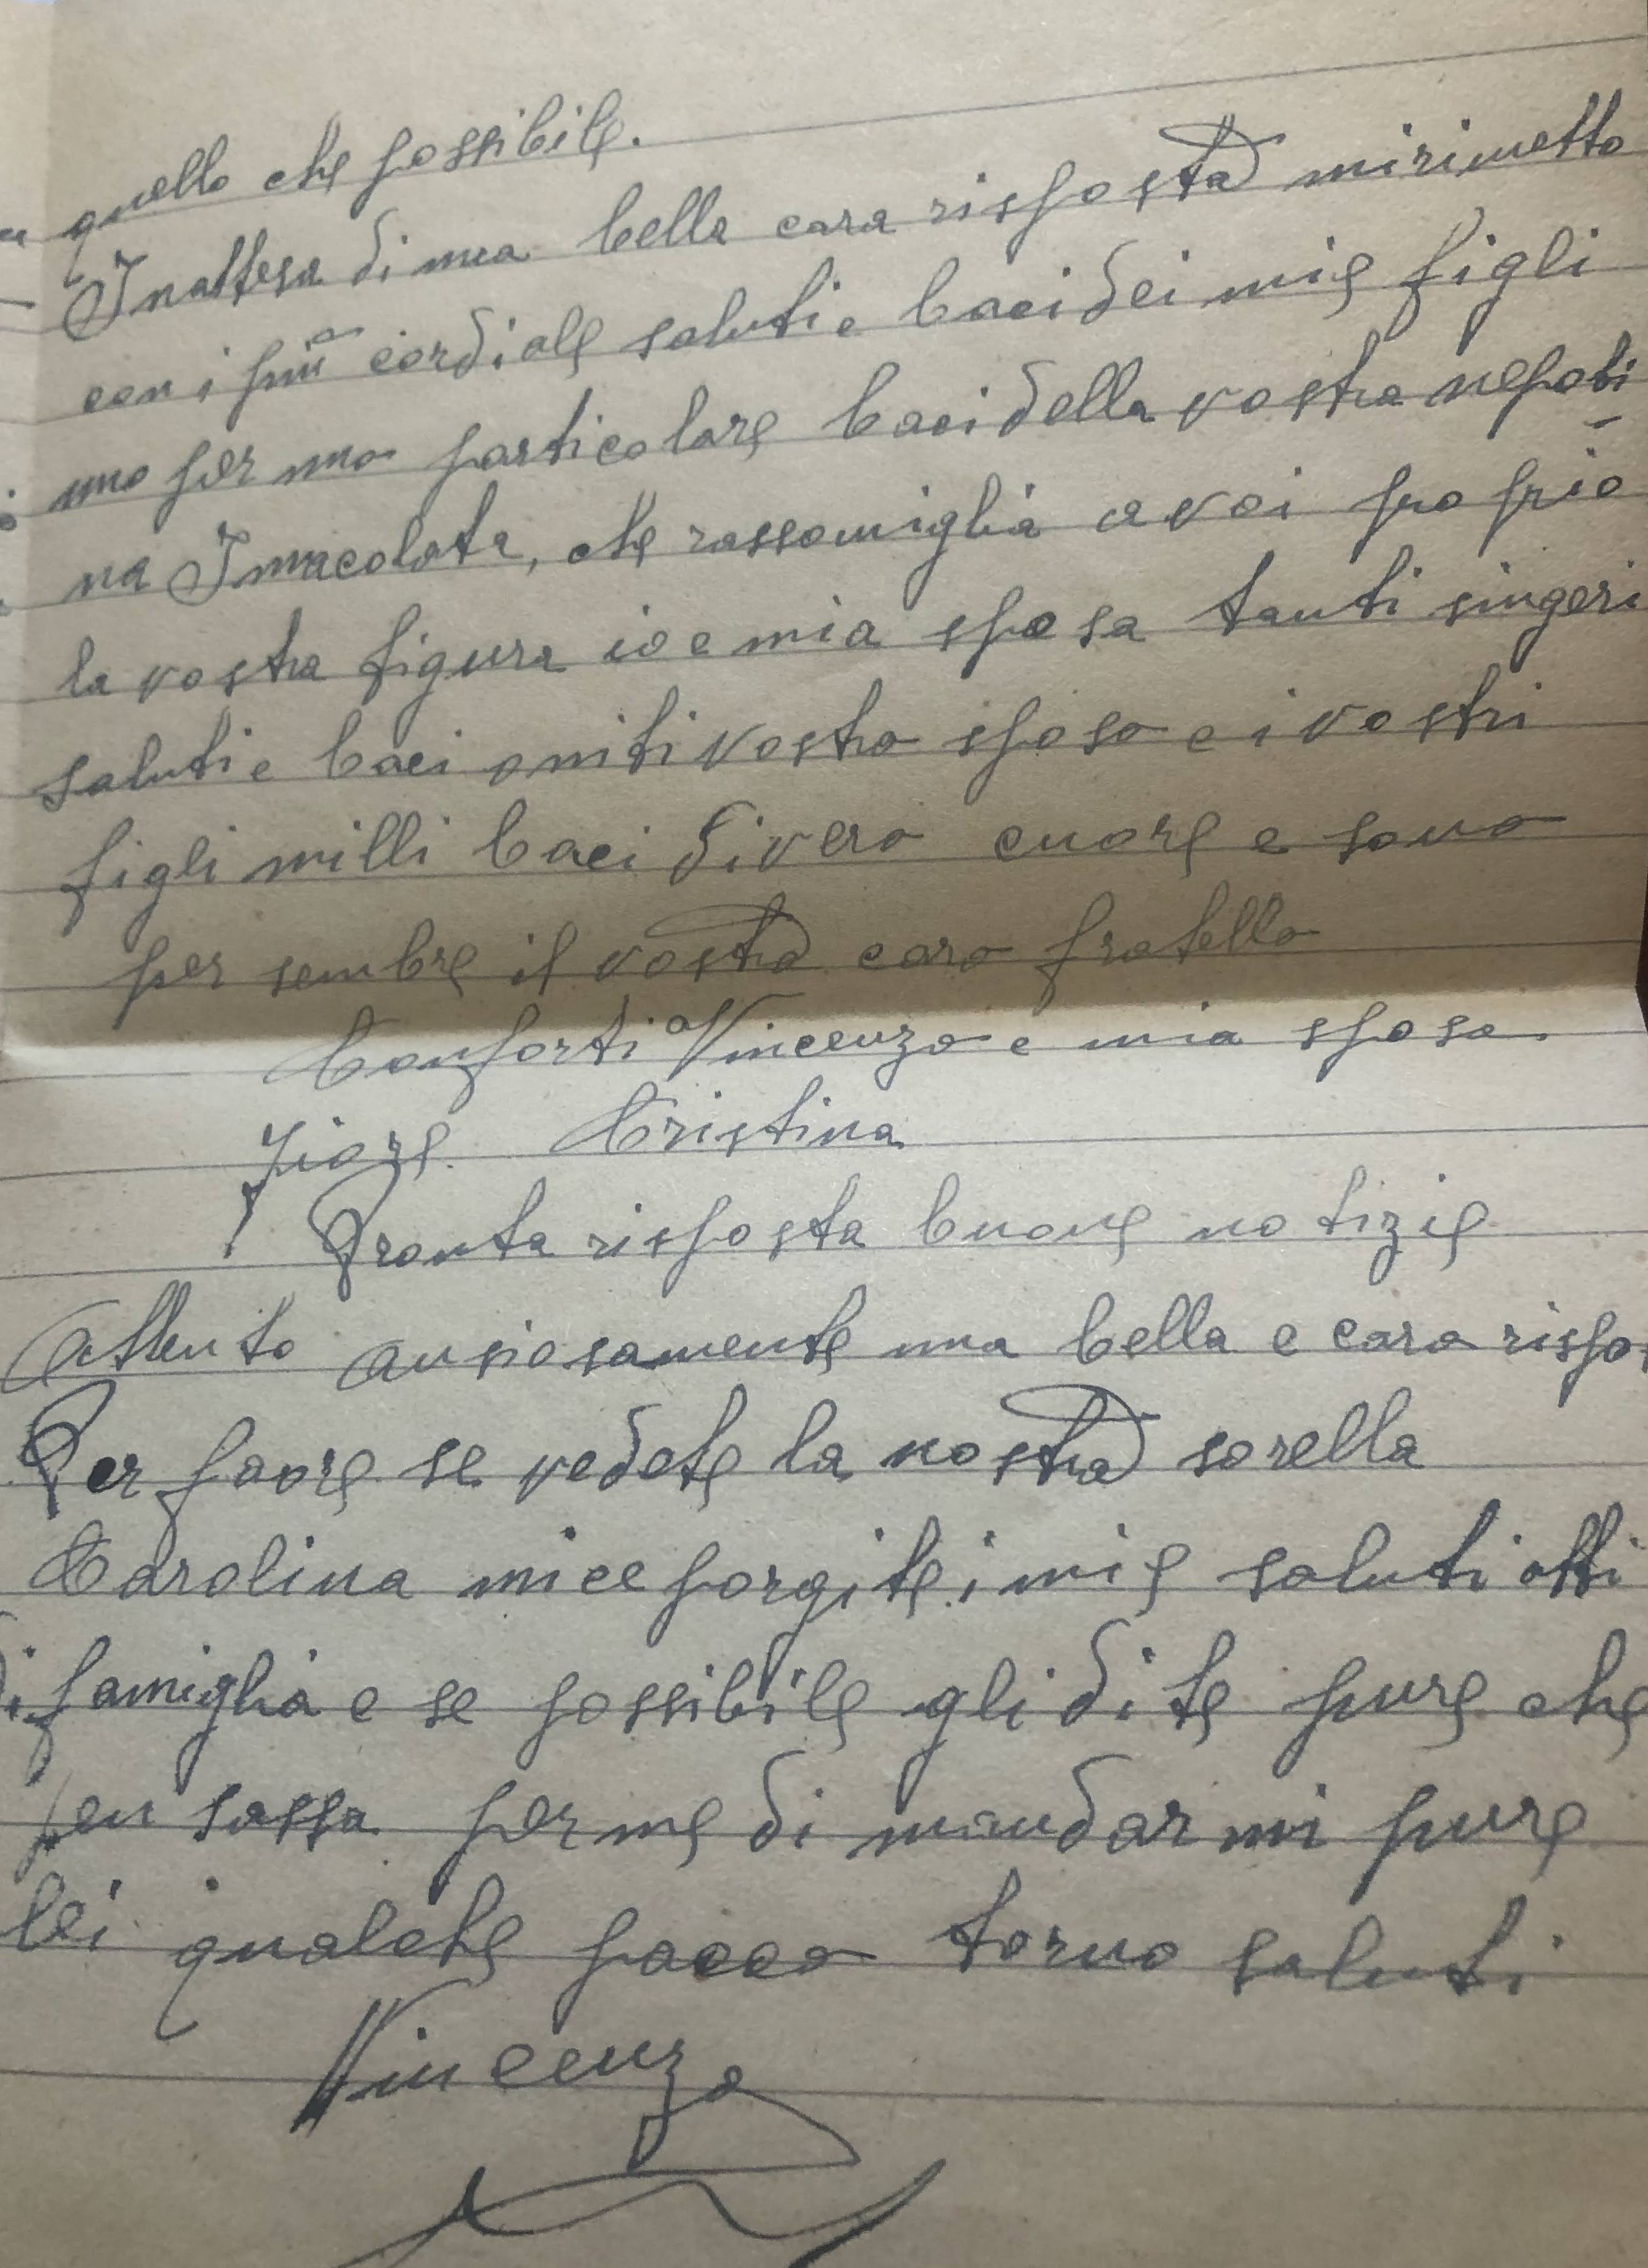 quello che possibile.
Inattesa di una bella cara risposta mirimetto
con i più cordiale saluti e baci dei mie figli
uno per uno particolare baci della vostra nepoti-
na Immacolata, che rassomiglia a voi propio
la vostra figura io e mia sposa tanti singeri
saluti e baci oniti vostro sposo e i vostri
figli milli baci di vero cuore e sono
per sembre il vostro caro fratello
Conforti Vincenzo e mia sposa
Fiore Cristina
Pronta risposta buone notizie
Attento ansiosamente una bella e cara rispos
Per favore se vedete la nostra sorella
Carolina mi ce porgite i mie saluti atti
di famiglia e se possibile gli dite pure che
pen sassa per me di mandar mi pure
lei qualche pacco torno saluti
Vincenzo